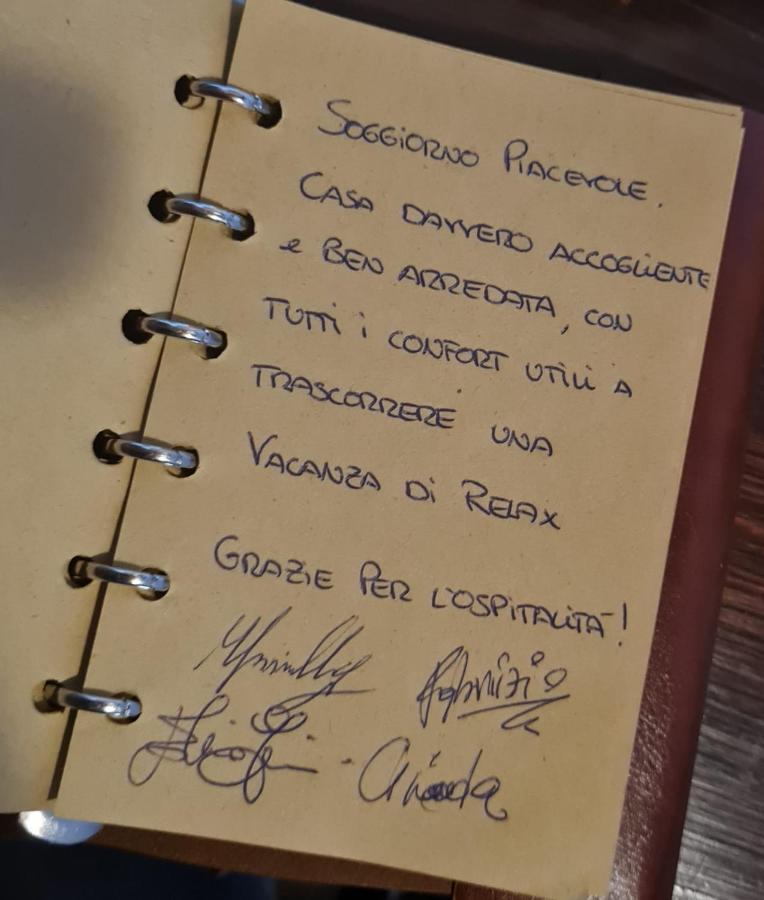 SOGGIORNO PIACEVOLE.
CASA DAVVERO ACCOGLIENTE
e BEN ARREDATA, CON
TUTTI i CONFORT UTILI A
TRASCORRERE UNA
VACANZA Di RELAX
GRAZIE PER L'OSPITALITÀ!
Fabrizio